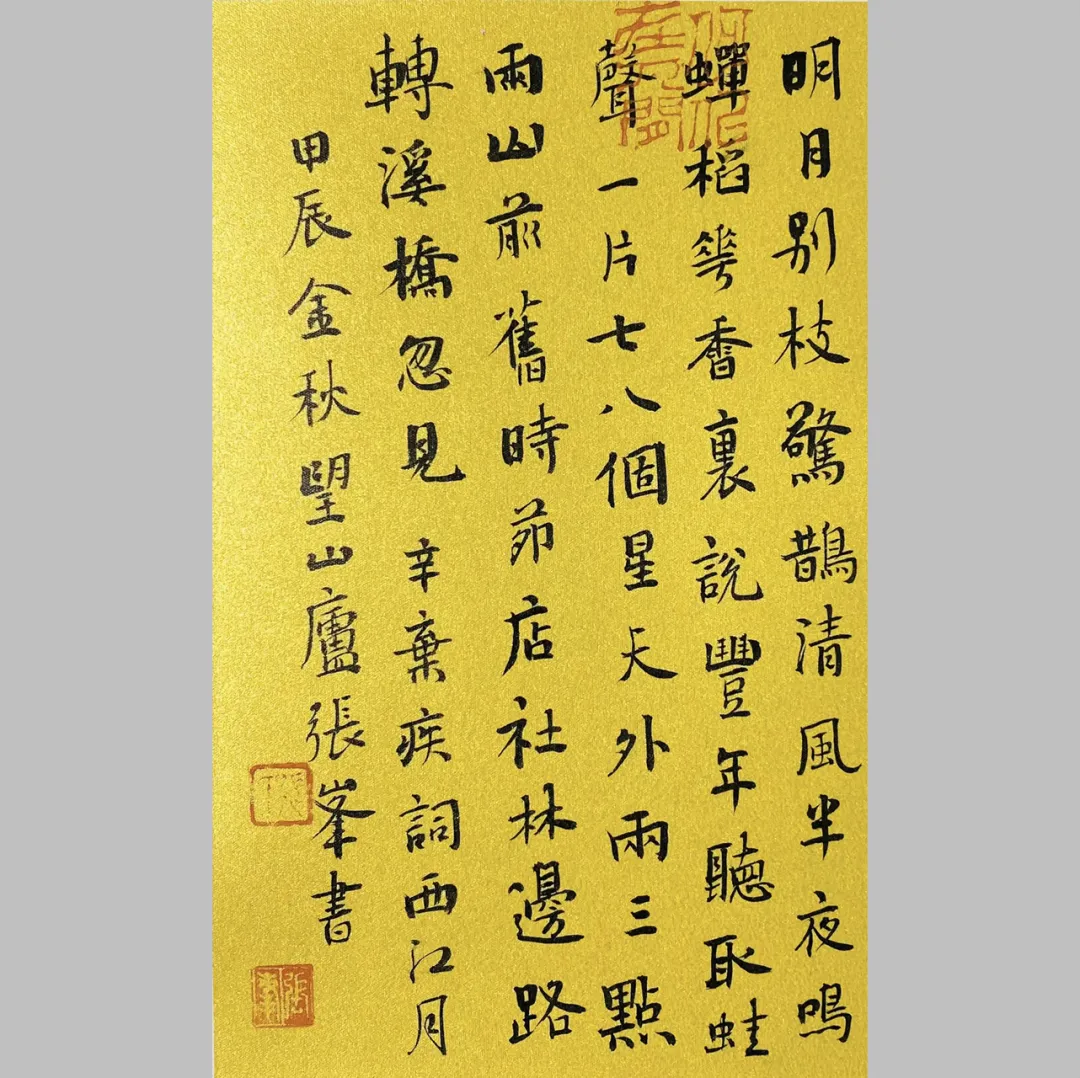 明月別枝驚鵲清風半夜鳴
蟬稻花香裏說豐年聽取蛙
聲一片七八個星天外兩三點
雨山前舊時茆店社林邊路
轉溪橋忽見 辛棄疾詞西江月
甲辰金秋望山廬張峯書